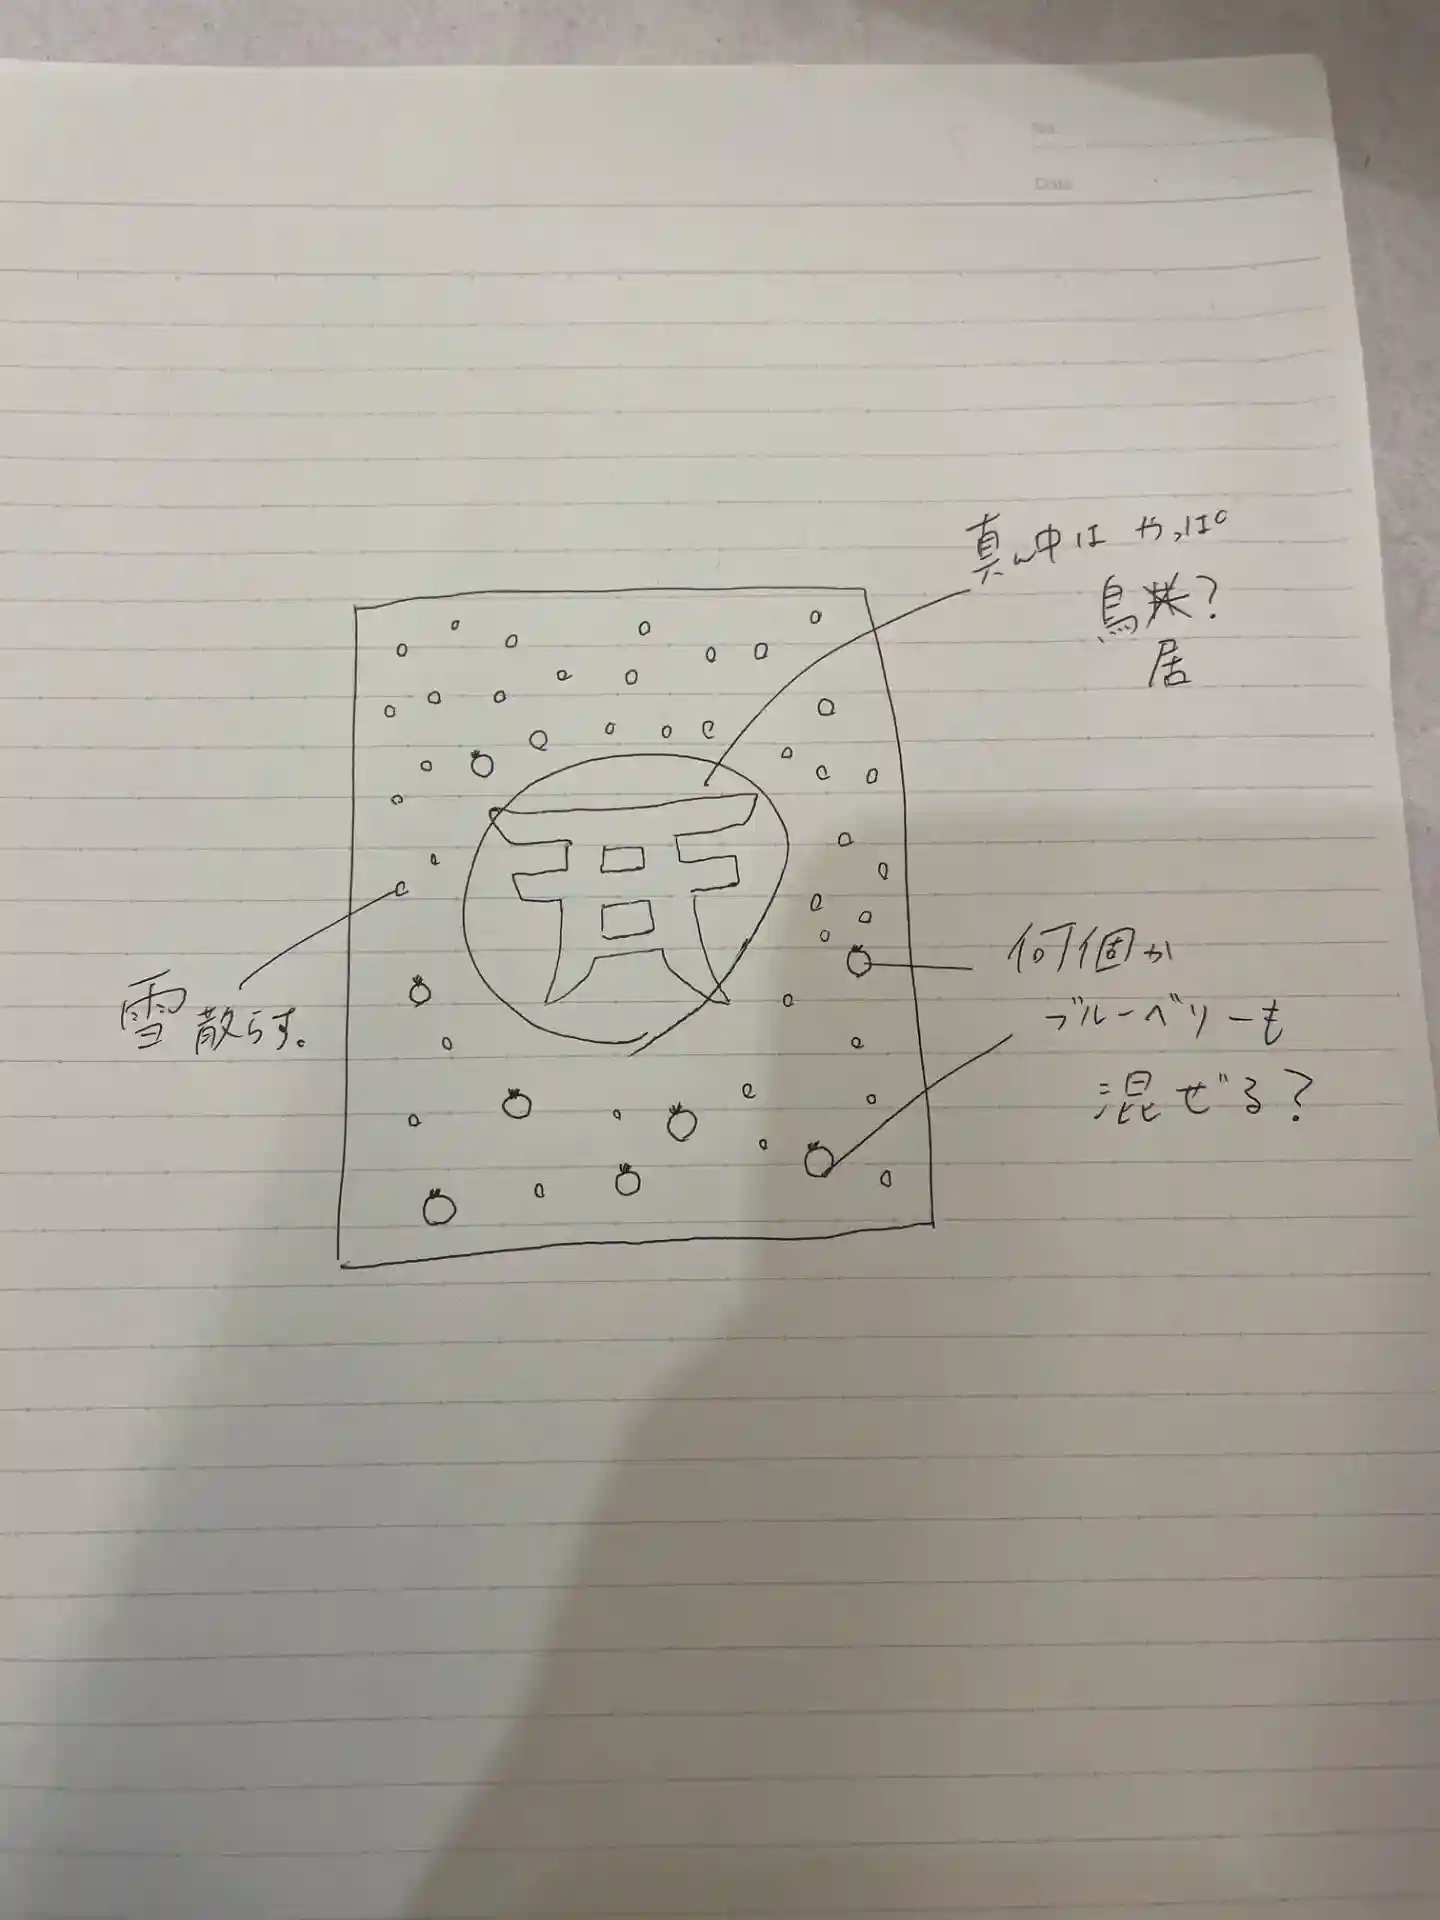 No.
Date
真ん中は やっぱ
鳥?
居
雪散らす。
何個か
ブルーベリーも
混ぜる?